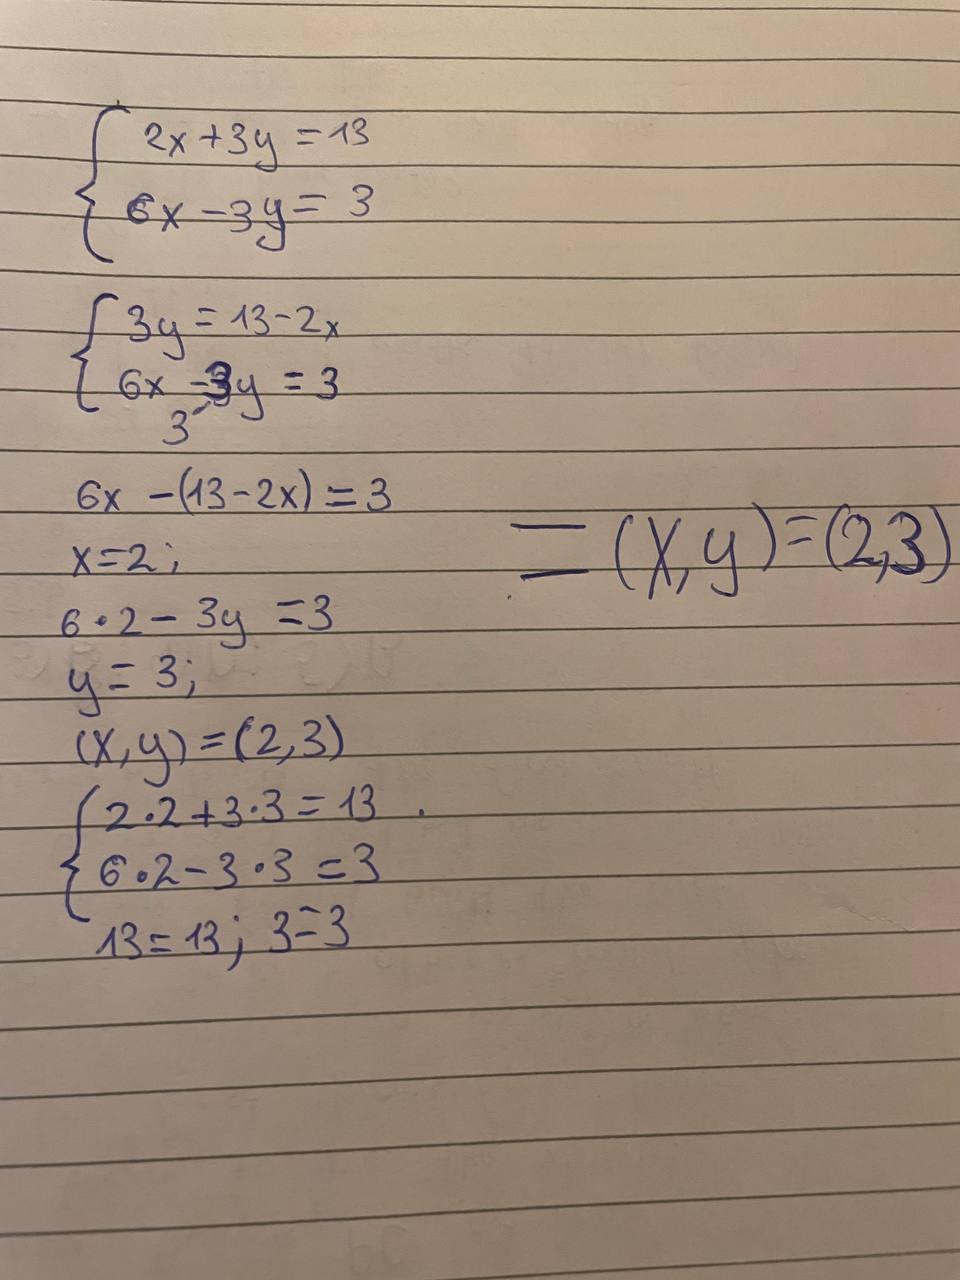 2x+3y=13
6x-3y=3
3y=13-2x
6x-3y=3
3
6x-(13-2x)=3
x=2;
6·2-3y=3
y=3;
(x,y)=(2,3)
2·2+3·3=13.
6·2-3·3=3
13=13; 3=3
=(x,y)=(2,3)